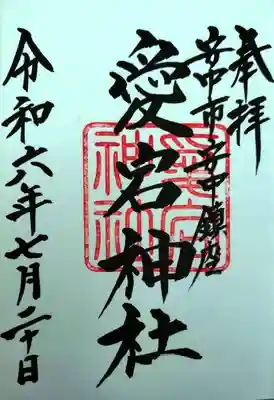 奉拝
安中市 安中鎮座
愛宕神社
愛宕神社
令和六年七月二十日